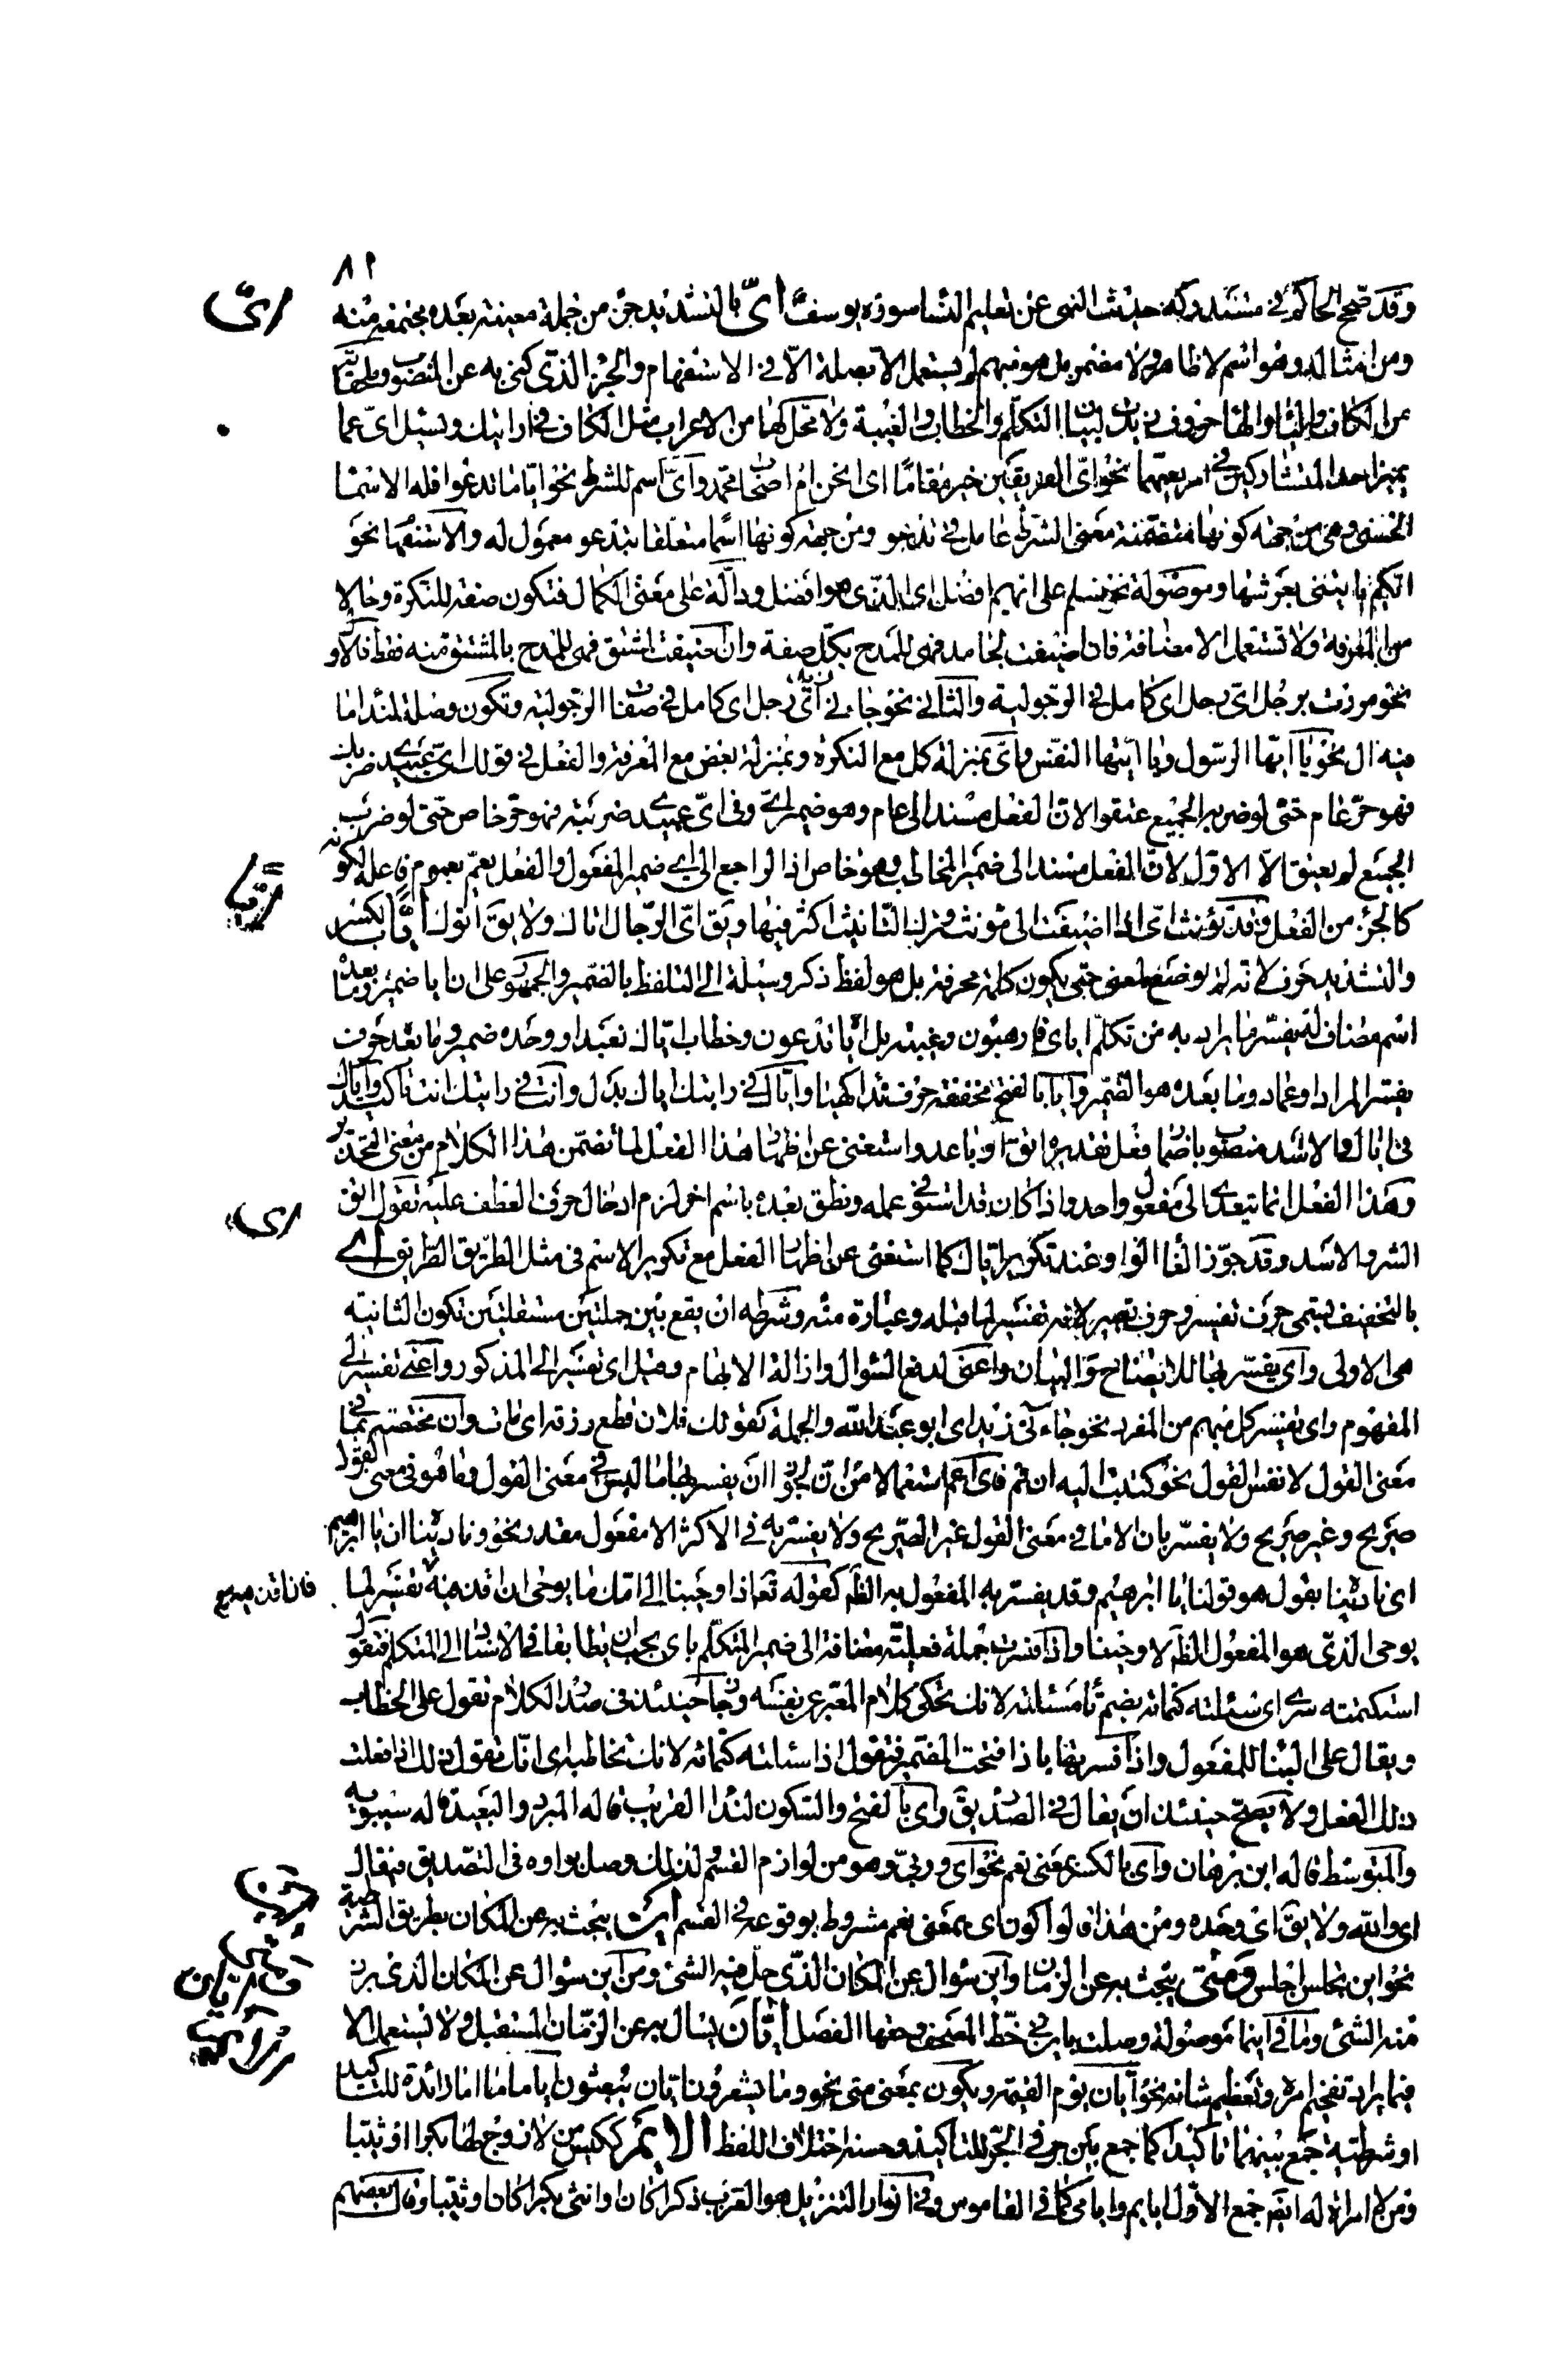 ٨١
وقد صحح الحاكم في مستدركه حديث النهي عن تعليم النسا سورة يوسف أيّ بالتشديد جزء من جملة معينة بعده مجتمعة منه
ايّ
ومن امثاله وهو اسم لا ظاهر ولا مضمر بل هو مبهم لم يستعمل الا بصلة الّا في الاستفهام والجزا الذي كني به عن المنصوب ويلحقها
من الكاف والياء والهاء حروف زيدت لبيان التكلّم والخطاب والغيبة ولا محلّ لها من الاعراب مثل الكاف في ارايتك ويسئل ايّ عما
يميز احد المتشاركين في امر يعمهما نحو ايّ الفريقين خير مقامًا اى انحن ام اصحاب محمد وايّ اسم للشرط نحو ايّاما تدعوا فله الاسما
الحسنى وهي من جهة كونها متضمنة معنى الشرط عامل في تدعو ومن جهة كونها اسما متعلقا بتدعو معمول له والاستفهام نحو
ايكم ياتيني بعرشها وموصولة نحو فسلم على ايهم افضل اى الذى هو افضل ودالّة على معنى الكمال فتكون صفة للنكرة وحالا
من المعرفة ولا تستعمل الا مضافة فان اضيفت لجامد فهي للمدح بكل صفة وان اضيفت لمشتق فهي للمدح بالمشتق منه فقط فالاول
نحو مررت برجل ايّ رجل اى كامل في الرجولية والثاني نحو جاءني ايّ رجل اى كامل في صفات الرجولية وتكون وصلة لنداء ما
فيه ال نحو يا ايها الرسول ويا ايتها النفس وايّ بمنزلة كل مع النكرة وبمنزلة بعض مع المعرفة والفعل في قولك ايّ عبيدى ضربك
فهو حرّ عام حتى لو ضربه الجميع عتقوا لانّ الفعل مسند الى عام وهو ضمير ايّ وفي ايّ عبيدى ضربته فهو حرّ خاص حتى لو ضرب
الجميع لم يعتق الّا الاول لانّ الفعل مسند الى ضمير المخاطب وهو خاص اذ الراجع الى ايّ ضمير المفعول والفعل يعمّ بعموم فاعله لكونه
كالجزء من الفعل وقد تؤنث ايّ اذا اضيفت الى مؤنث وترك التانيث اكثر فيها ويق ايّ الرجال اتاك ولا يق اتوك إيّا بالكسر
ايّا
والتشديد حرف لانه لم يوضع لمعنى حتى يكون كلمة محرفة بل هو لفظ ذكر وسيلة الى التلفظ بالضمير والجمهور على ان ايا ضمير وما بعده
اسم مضاف له يفسر ما يراد به من تكلّم اياى فارهبون وغيبة بل اياه تدعون وخطاب ايّاك نعبد او وحده ضمير وما بعده حرف
يفسر المراد او عماد وما بعده هو الضمير وايا بالفتح مخففة حرف نداء كهيا وايّاك في رايتك اياك بدل وانت في رايتك انت تاكيد واياك
في اياك والاسد منصوب باضمار فعل تقديره اتّق او باعد واستغنى عن اظهار هذا الفعل لما تضمّن هذا الكلام من معنى التحذير
وهذا الفعل انما يتعدى الى مفعول واحد واذا كان قد استوفى عمله ونطق بعده باسم اخر لزم ادخال حرف العطف عليه تقول اتق
الشر والاسد وقد جوّز القاء الواو عند تكرير ايّاك كما استغنى عن اظهار الفعل مع تكرير الاسم في مثل الطريق الطريق اى
اى
بالتخفيف يسمى حرف تفسير وحرف تعبير لانه تفسير لما قبله وعبارة منه وشرطه ان يقع بين جملتين مستقلتين تكون الثانية
هي الاولى واى يفسر بها للايضاح والبيان واعني لدفع السؤال وازالة الابهام وقيل اى تفسير الى المذكور واعني تفسير الى
المفهوم واى تفسير كل مبهم من المفرد نحو جاءني زيد اى ابو عبد الله والجملة كقولك فلان قطع رزقه اى مات وان مختصة بما في
معنى القول لا نفس القول نحو كتبت اليه ان قم فاى اعمّ استعمالا من ان لجواز ان يفسر بها ما ليس في معنى القول وما هو في معنى القول
صريح وغير صريح ولا يفسر بان الا ما في معنى القول غير الصريح ولا يفسر به في الاكثر الا مفعول مقدر نحو وناديناه ان يا ابرهيم
اى ناديناه بقول هو قولنا يا ابرهيم وقد يفسر به المفعول به الظم كقوله تعالى اذ اوحينا الى امّك ما يوحى ان اقذفيه تفسير لما
فان اقذفيه
يوحى الذي هو المفعول الظم لاوحينا واذا فسرت جملة فعلية مضافة الى ضمير المتكلّم باى يجب ان يطابقا في الاسناد الى المتكلم فتقول
استكتمته سرى اى سئلته كتمانه بضم تا سئلته لانك تحكى كلام المعبر عن نفسه وجاز حينئذ في صدر الكلام تقول على الخطاب
ويقال على البناء للمفعول واذا فسر بها باذا فتحت الضمير فتقول اذا سئلته كتمانه لانك تخاطبه اى انّك تقول ذلك اذا فعلت
ذلك الفعل ولا يصحّ حينئذ ان يقال في الصدر يق واى بالفتح والسكون لنداء القريب قاله المبرد والبعيد قاله سيبويه
والمتوسط قاله ابن برهان واى بالكسر بمعنى نعم نحو اى وربّي وهو من لوازم القسم لذلك وصل بواوه في التصديق فيقال
اى والله ولا يق اى وحده ومن هذا قالوا كون اى بمعنى نعم مشروط بوقوعه في القسم أين يبحث به عن المكان بطريق الشرطية
اين
نحو اين تجلس اجلس ومتى يبحث به عن الزمان واين سؤال عن المكان الذي حلّ فيه الشئ ومن اين سؤال عن المكان الذي برز
منه الشئ وما في اينما موصولة وصلت باين في خطّ المصحف وحقها الفصل أيّان يسال به عن الزمان المستقبل ولا تستعمل الا
فيما يراد تفخيم امره وتعظيم شانه نحو ايّان يوم القيمة ويكون بمعنى متى نحو وما يشعرون ايّان يبعثون ايّاما ما اما زائدة للتاكيد
او شرطية جمع بينهما تاكيدا كما جمع بين حرفي الجرّ للتاكيد وحسنه اختلاف اللفظ الايّم ككيّس من لا زوج لها بكرا او ثيبا
ومن لا امراة له ايضا جمع الاوّل ايايم وايامى كما في القاموس وفي انوار التنزيل هو العزب ذكرا كان او انثى بكرا كان او ثيبا وقال بعضهم